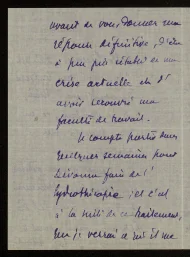 avant de vous donner ma
réponse définitive, d'être
à peu près rétabli de ma
crise actuelle et d'
avoir recouvré ma
faculté de travail.
Je compte partir dans
quelques semaines pour
Divonne faire de l'
hydrothérapie ; et c'est
à la suite de ce traitement,
que je verrai s'il me